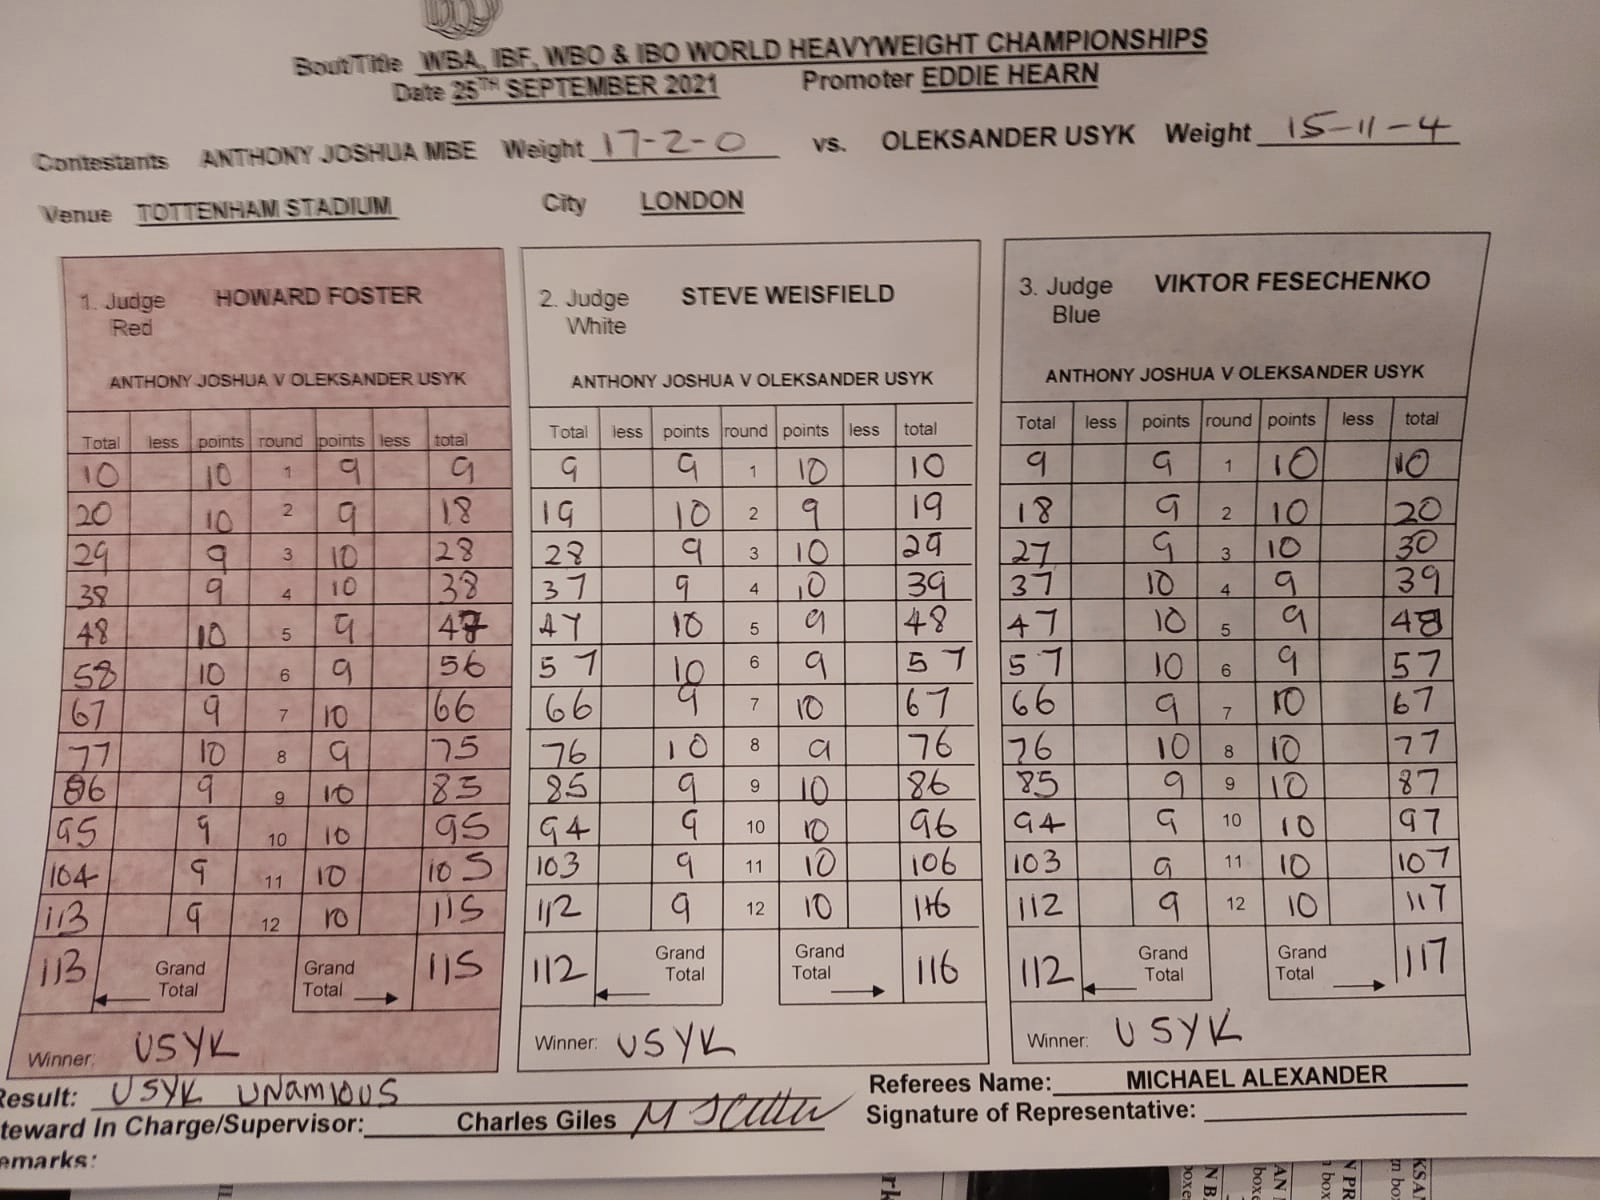 Bout/Title WBA, IBF, WBO & IBO WORLD HEAVYWEIGHT CHAMPIONSHIPS
Date 25TH SEPTEMBER 2021 Promoter EDDIE HEARN
Contestants ANTHONY JOSHUA MBE Weight 17-2-0 vs. OLEKSANDER USYK Weight 15-11-4
Venue TOTTENHAM STADIUM City LONDON
1. Judge HOWARD FOSTER
Red
ANTHONY JOSHUA V OLEKSANDER USYK
Total less points round points less total
10 10 1 9 9
20 10 2 9 18
29 9 3 10 28
38 9 4 10 38
48 10 5 9 47
58 10 6 9 56
67 9 7 10 66
77 10 8 9 75
86 9 9 10 85
95 9 10 10 95
104 9 11 10 105
113 9 12 10 115
113 Grand Total Grand Total 115
Winner: USYK
2. Judge STEVE WEISFIELD
White
ANTHONY JOSHUA V OLEKSANDER USYK
Total less points round points less total
9 9 1 10 10
19 10 2 9 19
28 9 3 10 29
37 9 4 10 39
47 10 5 9 48
57 10 6 9 57
66 9 7 10 67
76 10 8 9 76
85 9 9 10 86
94 9 10 10 96
103 9 11 10 106
112 9 12 10 116
112 Grand Total Grand Total 116
Winner: USYK
3. Judge VIKTOR FESECHENKO
Blue
ANTHONY JOSHUA V OLEKSANDER USYK
Total less points round points less total
9 9 1 10 10
18 9 2 10 20
27 9 3 10 30
37 10 4 9 39
47 10 5 9 48
57 10 6 9 57
66 9 7 10 67
76 10 8 10 77
85 9 9 10 87
94 9 10 10 97
103 9 11 10 107
112 9 12 10 117
112 Grand Total Grand Total 117
Winner: USYK
Result: USYK UNAMIOUS
teward In Charge/Supervisor: Charles Giles
emarks:
Referees Name: MICHAEL ALEXANDER
Signature of Representative: